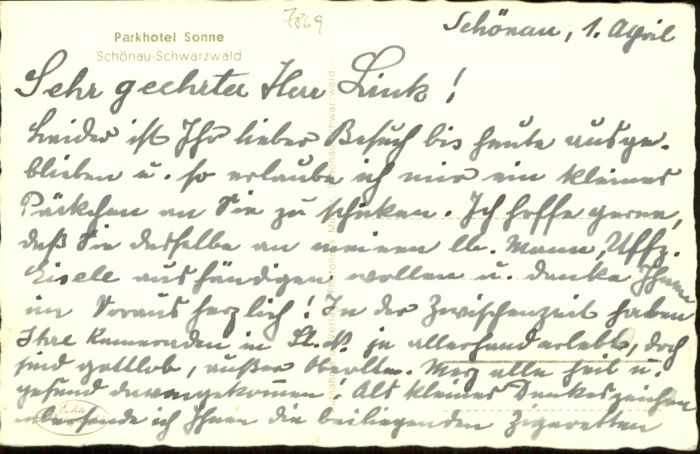 7869
Parkhotel Sonne
Schönau-Schwarzwald
Schönau, 1. April
Sehr geehrter Herr Link!
Leider ist Ihr lieber Besuch bis heute ausge-
blieben u. so erlaube ich mir ein kleines
Päckchen an Sie zu schicken. Ich hoffe gerne,
daß Sie dasselbe an meinen lb. Mann, Uffz.
Eisele aushändigen wollen u. danke Ihnen
im Voraus herzlich! In der Zwischenzeit haben
Ihre Kameraden in St. N. ja allerhand erlebt, doch
sind gottlob, außer Oberltn. Merz alle heil u.
gesund davongekommen! Als kleines Dankeszeichen
übersende ich Ihnen die beiliegenden Zigaretten